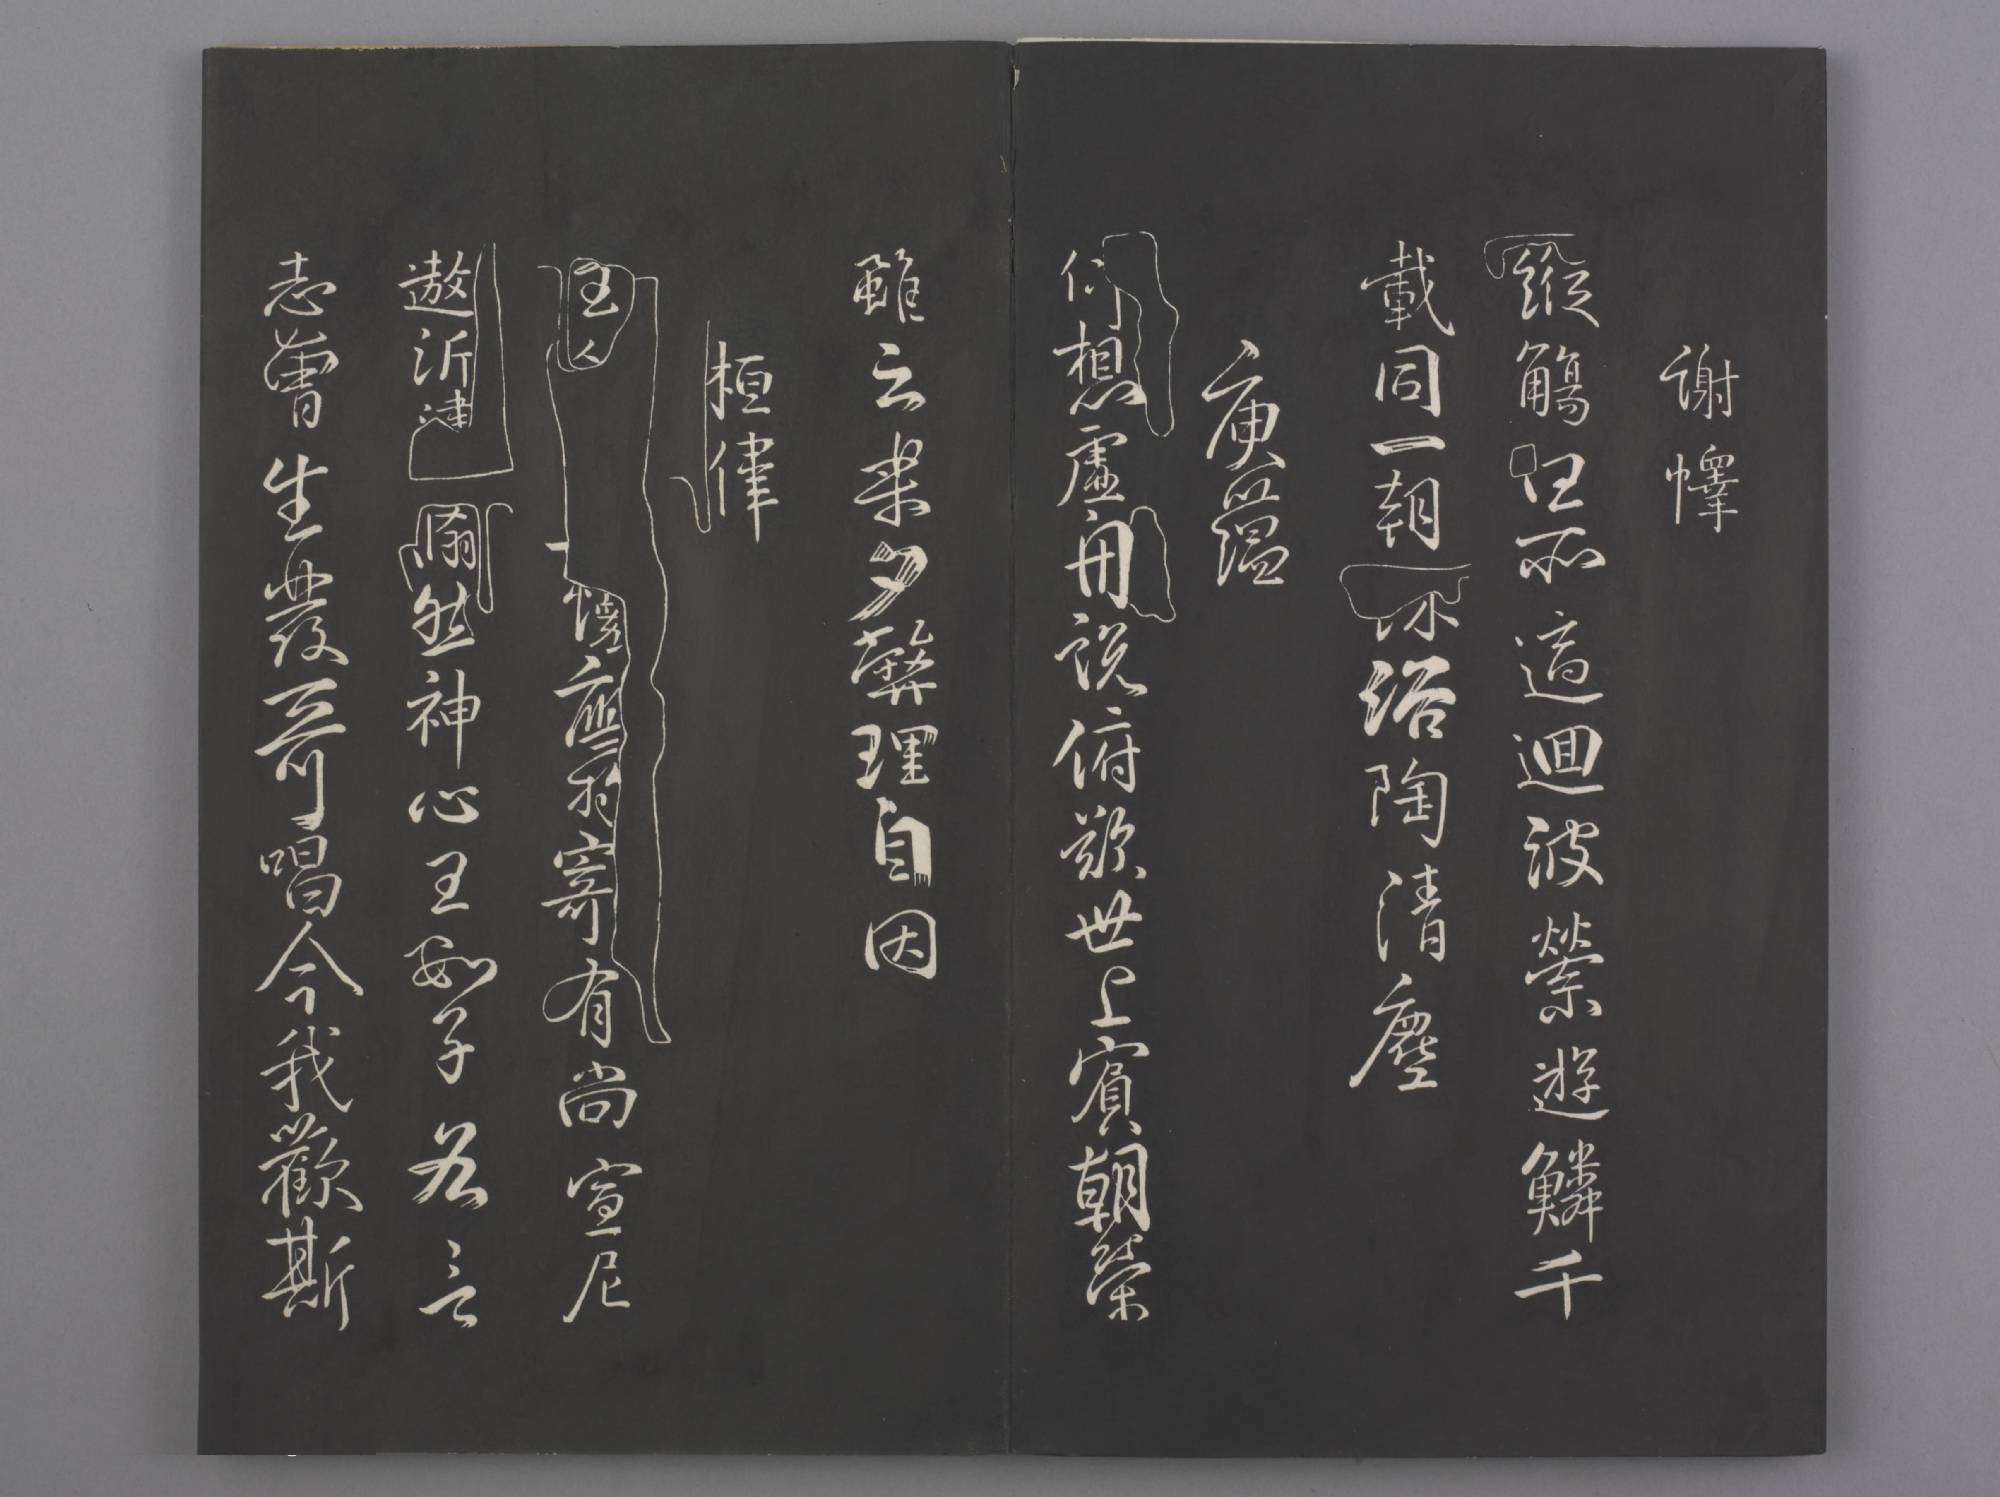 謝懌
縱觴任所適迴波縈遊鱗千
載同一朝沐浴陶清塵
庾蘊
仰想虛舟説俯歎世上賓朝榮
雖云樂夕弊理自因
桓偉
主人懷應物寄有尚宣尼
遨沂津翛然神心王數子各言
志曾生發奇唱今我歡斯